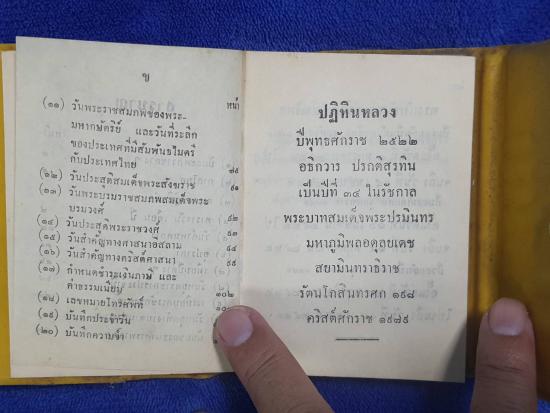 ข
หน้า
(๑๑) วันพระราชสมภพของพระ-
มหากษัตริย์ และวันที่ระลึก
ของประเทศที่มีสัมพันธไมตรี
กับประเทศไทย
(๑๒) วันประสูติสมเด็จพระสังฆราช ๙๑
(๑๓) วันพระบรมราชสมภพสมเด็จพระ
บรมวงศ์ ๙๒
(๑๔) วันประสูติพระราชวงศ์ ๙๓
(๑๕) วันสำคัญทางศาสนาอิสลาม ๙๔
(๑๖) วันสำคัญทางคริสต์ศาสนา ๙๕
(๑๗) กำหนดชำระเงินภาษี และ
ค่าธรรมเนียม ๑๐๒
(๑๘) เลขหมายโทรศัพท์
(๑๙) บันทึกประจำวัน
(๒๐) บันทึกความจำ
ปฏิทินหลวง
ปีพุทธศักราช ๒๕๒๒
อธิกวาร ปรกติสุรทิน
เป็นปีที่ ๓๔ ในรัชกาล
พระบาทสมเด็จพระปรมินทร
มหาภูมิพลอดุลยเดช
สยามินทราธิราช
รัตนโกสินทรศก ๑๙๘
คริสต์ศักราช ๑๙๗๙